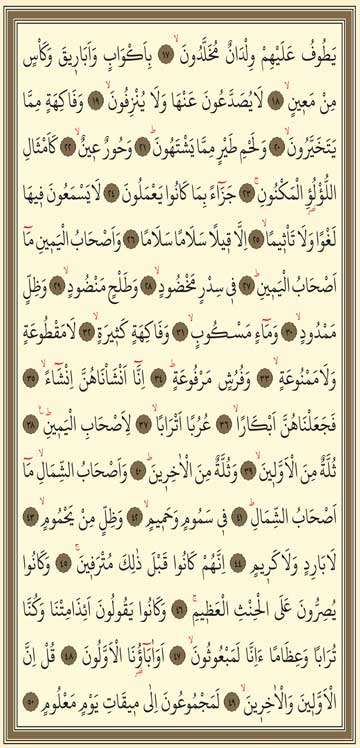 يَطُوفُ عَلَيْهِمْ وِلْدَانٌ مُخَلَّدُونَۙ ﴿١٧﴾ بِاَكْوَابٍ وَاَبَار۪يقَ وَكَأْسٍ
مِنْ مَع۪ينٍۙ ﴿١٨﴾ لَا يُصَدَّعُونَ عَنْهَا وَلَا يُنْزِفُونَۙ ﴿١٩﴾ وَفَاكِهَةٍ مِمَّا
يَتَخَيَّرُونَۙ ﴿٢٠﴾ وَلَحْمِ طَيْرٍ مِمَّا يَشْتَهُونَۜ ﴿٢١﴾ وَحُورٌ ع۪ينٌۙ ﴿٢٢﴾ كَاَمْثَالِ
اللُّؤْلُؤِ۬ الْمَكْنُونِۚ ﴿٢٣﴾ جَزَٓاءً بِمَا كَانُوا يَعْمَلُونَ ﴿٢٤﴾ لَا يَسْمَعُونَ ف۪يهَا
لَغْوًا وَلَا تَأْث۪يمًاۙ ﴿٢٥﴾ اِلَّا ق۪يلًا سَلَامًا سَلَامًا ﴿٢٦﴾ وَاَصْحَابُ الْيَم۪ينِ مَٓا
اَصْحَابُ الْيَم۪ينِۜ ﴿٢٧﴾ ف۪ي سِدْرٍ مَخْضُودٍۙ ﴿٢٨﴾ وَطَلْحٍ مَنْضُودٍۙ ﴿٢٩﴾ وَظِلٍّ
مَمْدُودٍۙ ﴿٣٠﴾ وَمَٓاءٍ مَسْكُوبٍۙ ﴿٣١﴾ وَفَاكِهَةٍ كَث۪يرَةٍۙ ﴿٣٢﴾ لَا مَقْطُوعَةٍ
وَلَا مَمْنُوعَةٍۙ ﴿٣٣﴾ وَفُرُشٍ مَرْفُوعَةٍۜ ﴿٣٤﴾ اِنَّٓا اَنْشَأْنَاهُنَّ اِنْشَٓاءًۙ ﴿٣٥﴾
فَجَعَلْنَاهُنَّ اَبْكَارًاۙ ﴿٣٦﴾ عُرُبًا اَتْرَابًاۙ ﴿٣٧﴾ لِاَصْحَابِ الْيَم۪ينِۜ ﴿٣٨﴾
ثُلَّةٌ مِنَ الْاَوَّل۪ينَۙ ﴿٣٩﴾ وَثُلَّةٌ مِنَ الْاٰخِر۪ينَۜ ﴿٤٠﴾ وَاَصْحَابُ الشِّمَالِۙ مَٓا
اَصْحَابُ الشِّمَالِۜ ﴿٤١﴾ ف۪ي سَمُومٍ وَحَم۪يمٍۙ ﴿٤٢﴾ وَظِلٍّ مِنْ يَحْمُومٍۙ ﴿٤٣﴾
لَا بَارِدٍ وَلَا كَر۪يمٍ ﴿٤٤﴾ اِنَّهُمْ كَانُوا قَبْلَ ذٰلِكَ مُتْرَف۪ينَۚ ﴿٤٥﴾ وَكَانُوا
يُصِرُّونَ عَلَى الْحِنْثِ الْعَظ۪يمِۚ ﴿٤٦﴾ وَكَانُوا يَقُولُونَ اَئِذَا مِتْنَا وَكُنَّا
تُرَابًا وَعِظَامًا ءَاِنَّا لَمَبْعُوثُونَۙ ﴿٤٧﴾ اَوَاٰبَٓاؤُ۬نَا الْاَوَّلُونَ ﴿٤٨﴾ قُلْ اِنَّ
الْاَوَّل۪ينَ وَالْاٰخِر۪ينَۙ ﴿٤٩﴾ لَمَجْمُوعُونَ اِلٰى م۪يقَاتِ يَوْمٍ مَعْلُومٍ ﴿٥٠﴾